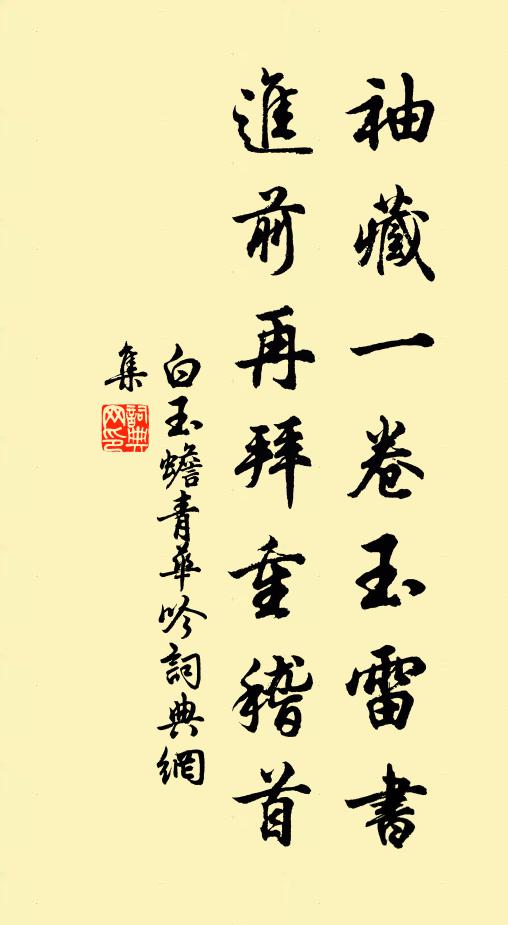 袖藏一卷玉雷書
進前再拜重稽首
白玉蟾青華吟詞典網
集
詞典
网印